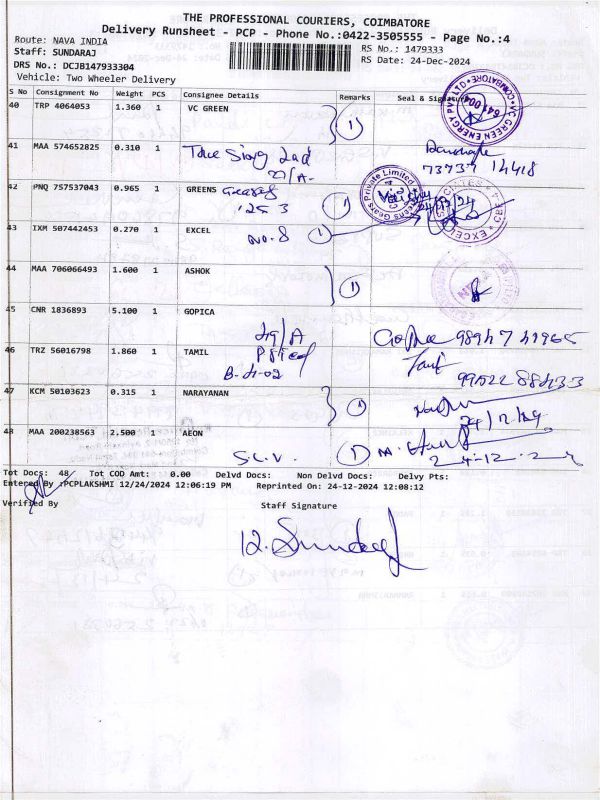 THE PROFESSIONAL COURIERS, COIMBATORE
Delivery Runsheet - PCP - Phone No.:0422-3505555 - Page No.:4
Route: NAVA INDIA
Staff: SUNDARAJ
RS No.: 1479333
DRS No.: DCJB147933304
RS Date: 24-Dec-2024
Vehicle: Two Wheeler Delivery
S No Consignment No Weight PCS Consignee Details Remarks Seal & Signature
40 TRP 4064053 1.360 1 VC GREEN
1
VC GREEN ENERGY PVT LTD COIMBATORE 641 004
41 MAA 574652825 0.310 1
73737 14418
42 PNQ 757537043 0.965 1 GREENS
1
Greens Gears Private Limited
24/12/24
43 IXM 507442453 0.270 1 EXCEL
No. 8 1
EXCEL
44 MAA 706066493 1.600 1 ASHOK
1
45 CNR 1836893 5.100 1 GOPICA
46 TRZ 56016798 1.860 1 TAMIL
47 KCM 50103623 0.315 1 NARAYANAN
1
24/12/24
48 MAA 200238563 2.500 1 AEON
S.C.V. 1
24-12-2
Tot Docs: 48/ Tot COD Amt: 0.00 Delvd Docs: Non Delvd Docs: Delvy Pts:
Entered By :PCPLAKSHMI 12/24/2024 12:06:19 PM Reprinted On: 24-12-2024 12:08:12
Verified By Staff Signature